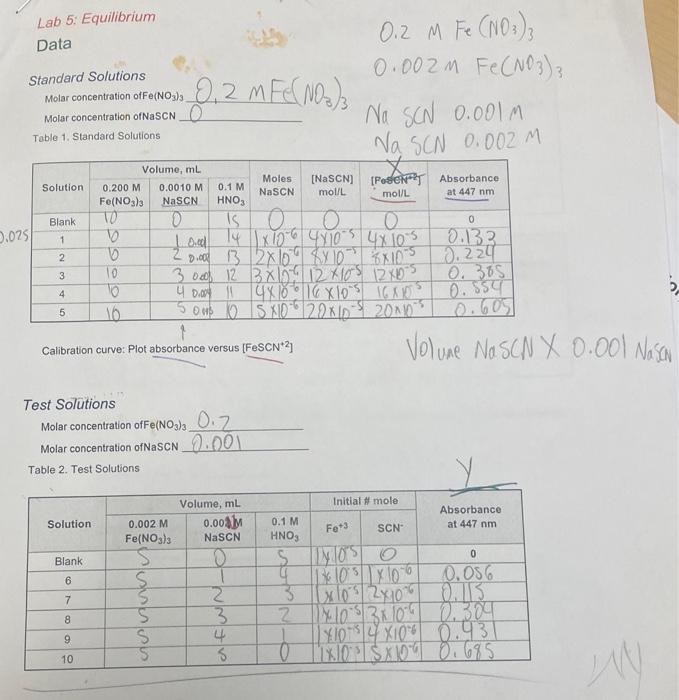 Lab 5: Equilibrium
Data
0.2 M Fe(NO3)3
0.002M Fe(NO3)3
NaSCN 0.001M
NaSCN 0.002 M
Standard Solutions
Molar concentration ofFe(NO3)3 0.2 MFe(NO3)3
Molar concentration ofNaSCN 0
Table 1. Standard Solutions
X
Volume, mL
Solution 0.200 M Fe(NO3)3 0.0010 M NaSCN 0.1 M HNO3 Moles NaSCN [NaSCN] mol/L [FeSCN+2] mol/L Absorbance at 447 nm
Blank 10 0 15 0 0 0 0
0.025 1 10 1 0.001 14 1x10-6 4x10-5 4x10-5 0.133
2 10 2 0.002 13 2x10-6 8x10-5 8x10-5 0.224
3 10 3 0.003 12 3x10-6 12x10-5 12x10-5 0.385
4 10 4 0.004 11 4x10-6 16x10-5 16x10-5 0.554
5 10 5 0.005 10 5x10-6 20x10-5 20x10-5 0.605
Calibration curve: Plot absorbance versus [FeSCN+2]
Volume NaSCN X 0.001 NaSCN
Test Solutions
Molar concentration ofFe(NO3)3 0.2
Molar concentration ofNaSCN 0.001
Table 2. Test Solutions
Y
Volume, mL Initial # mole
Solution 0.002 M Fe(NO3)3 NaSCN 0.1 M HNO3 Fe+3 SCN- Absorbance at 447 nm
Blank 5 0 5 1x10-5 0 0
6 5 1 4 1x10-5 1x10-6 0.056
7 5 2 3 1x10-5 2x10-6 0.115
8 5 3 2 1x10-5 3x10-6 0.304
9 5 4 1 1x10-5 4x10-6 0.431
10 5 5 0 1x10-5 5x10-6 0.685